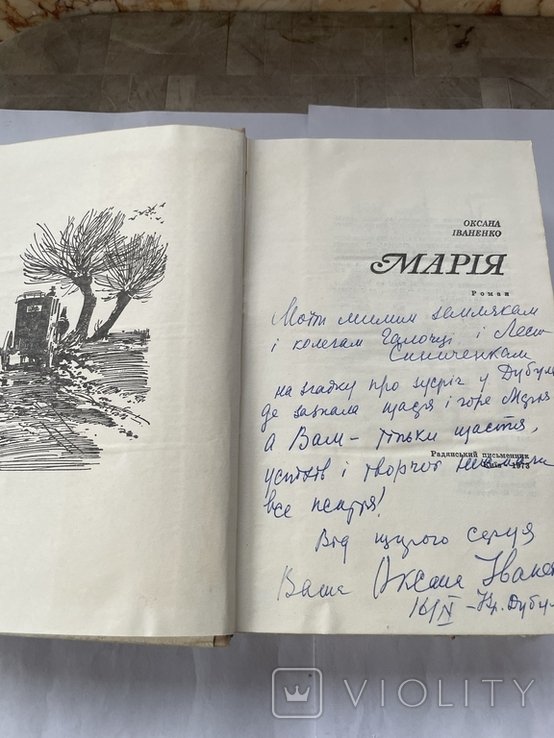 ОКСАНА
ІВАНЕНКО
МАРІЯ
Роман
Моїм милим землякам
і колегам Галочці і Лесю
Синиченкам
на згадку про зустріч у
де зазнала щастя і горе Марія
а Вам – тільки щастя,
Радянський письменник
Київ 1973
успіхів і творчої
все
Від щирого серця
Ваша Оксана Іване
16/IV – Дубул
VIOLITY